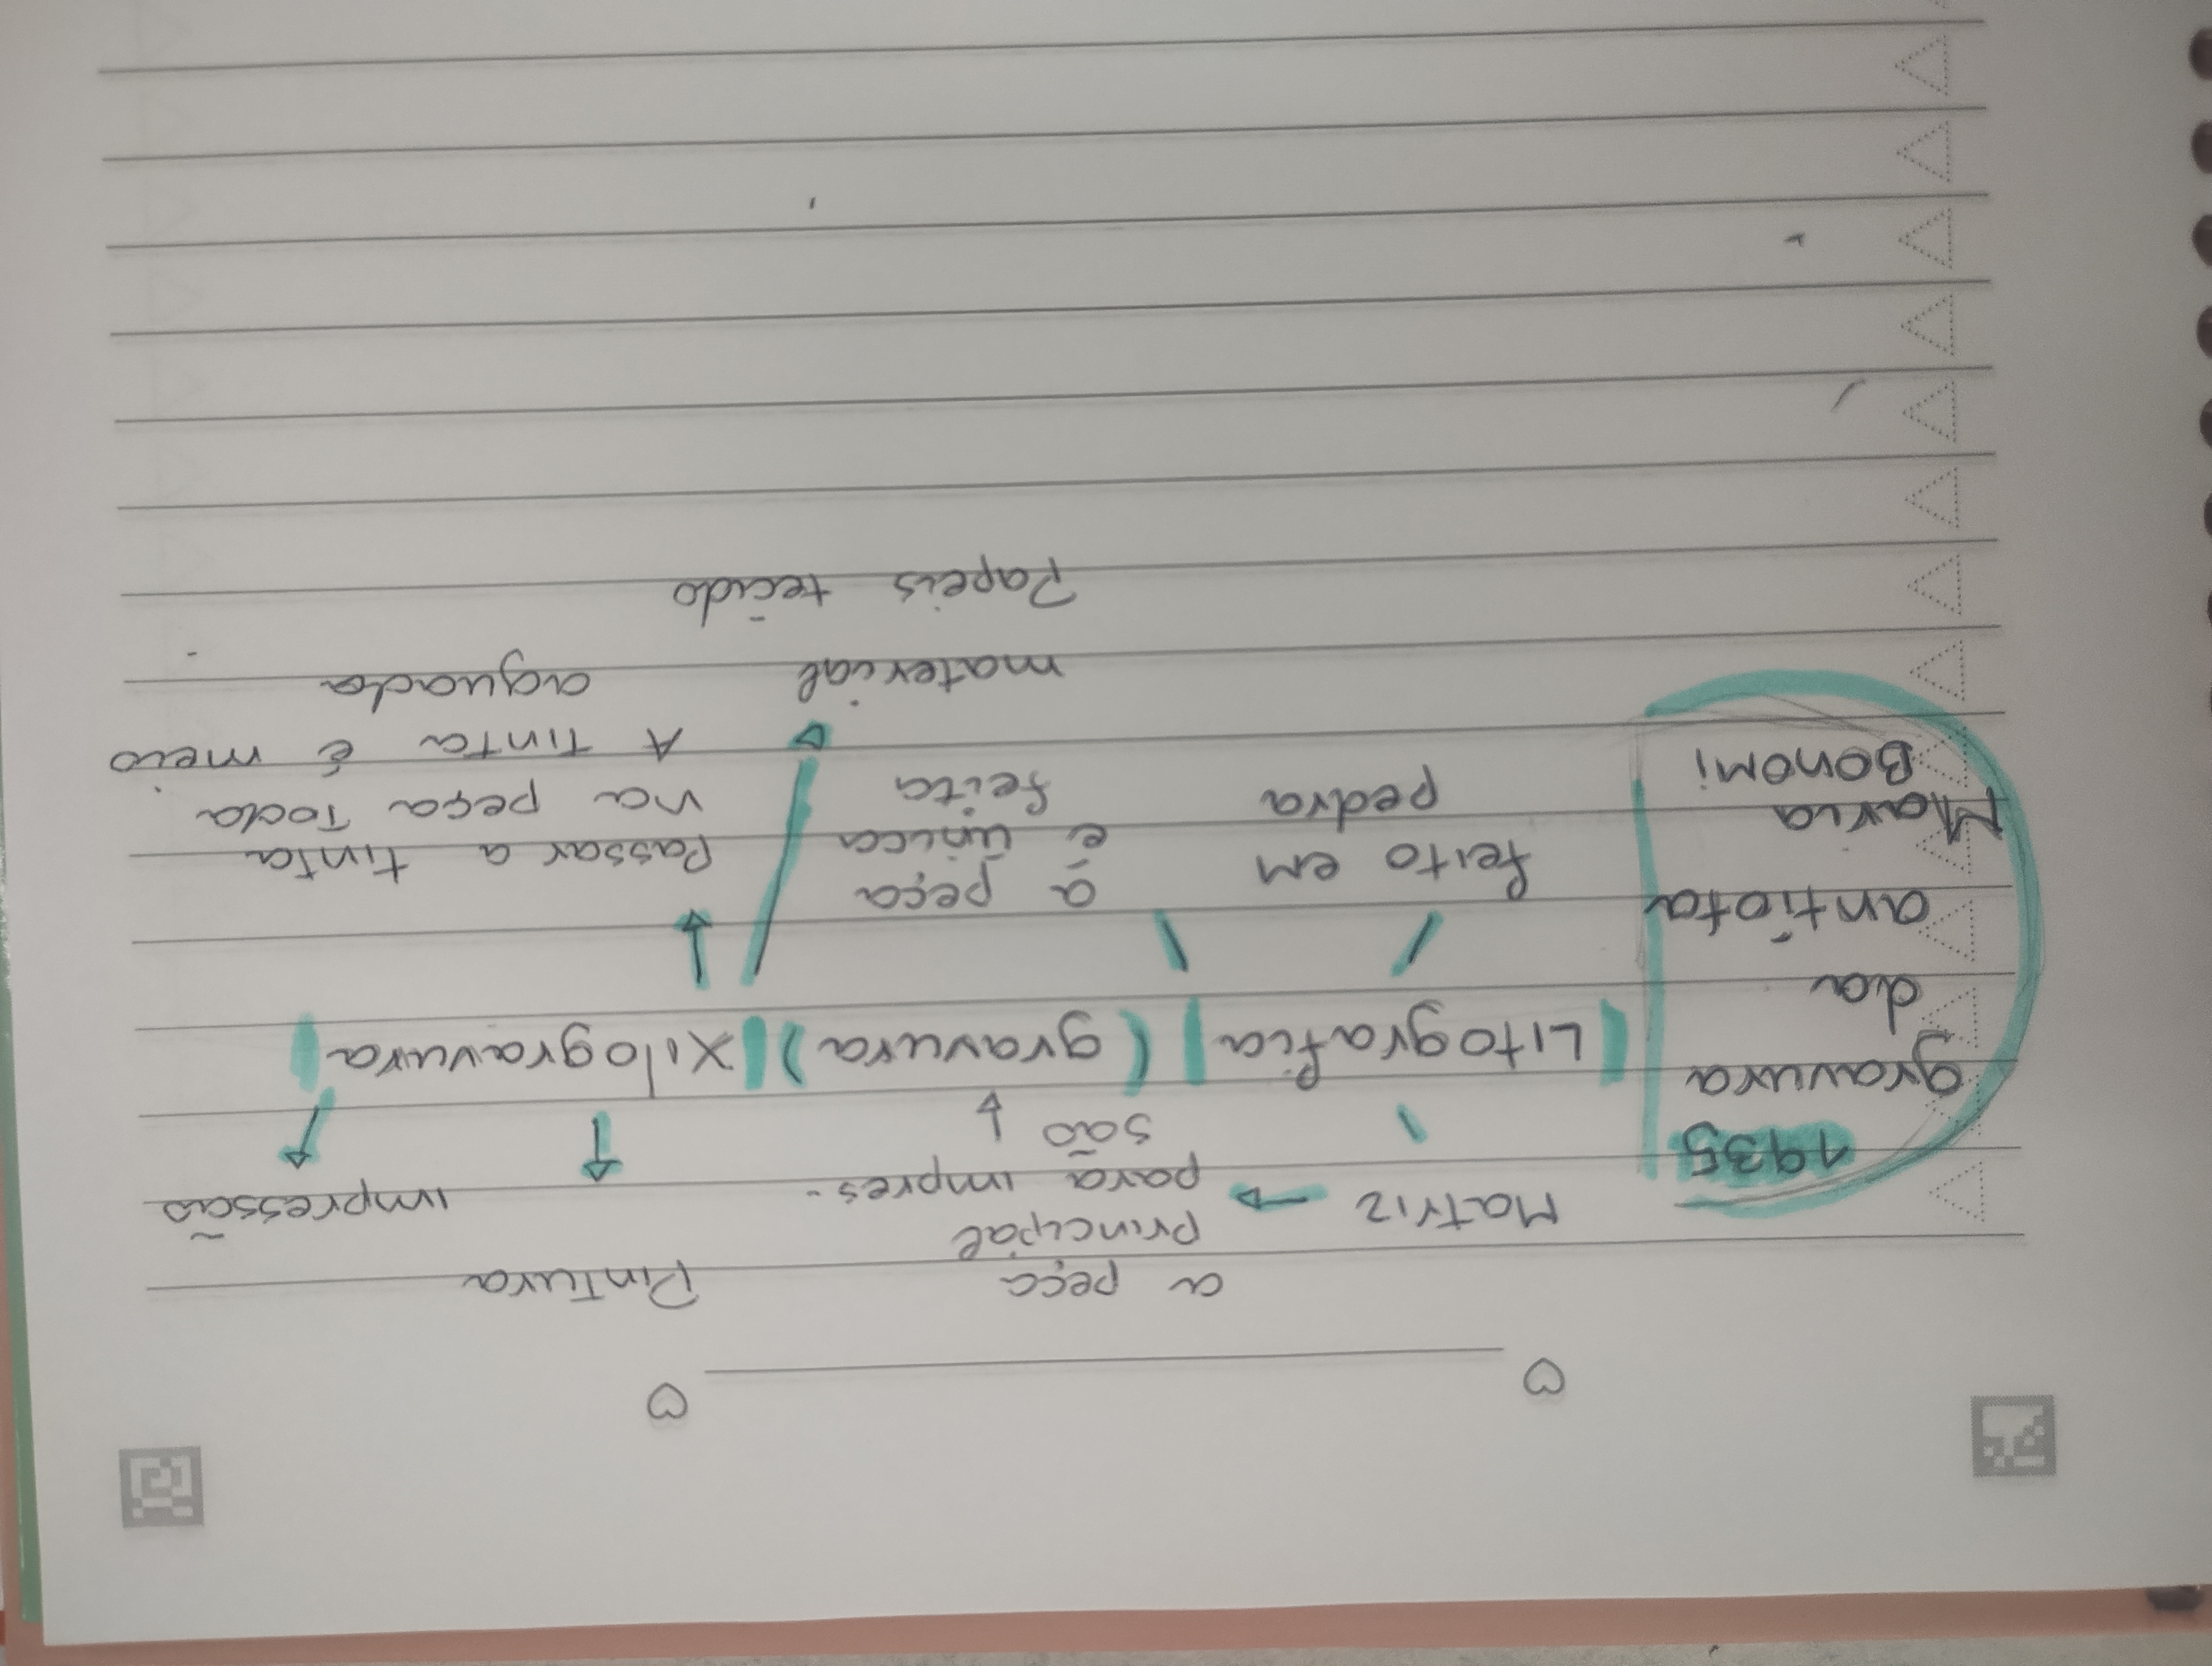 a peça
principal
Pintura
Matriz → para impres-
são
impressão
1935
gravura
da
antiota
Maria
Bonomi
Litografia (gravura) Xilogravura
feito em
pedra
a peça
é única
feita
Passar a tinta
na peça Toda
A tinta é meio
aguada
material
Papeis tecido